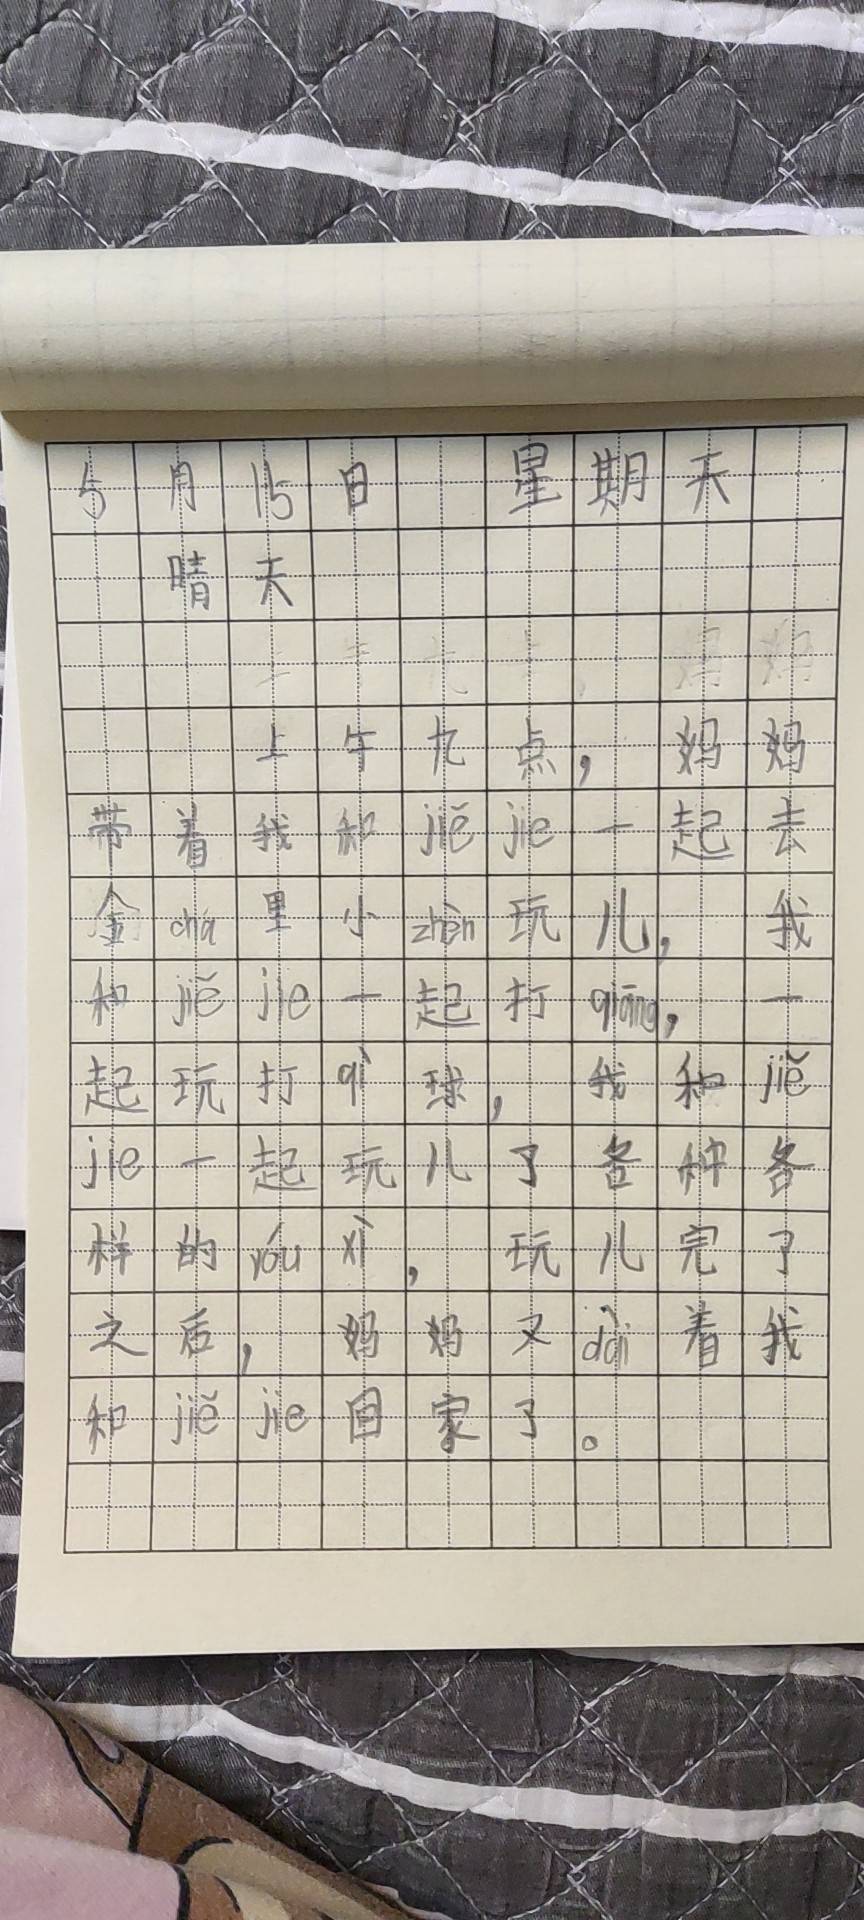 5月15日 星期天
晴天
上午九点，妈妈
带着我和jiě jie一起去
金chá里小zhèn玩儿，我
和jiě jie一起打qiāng，一
起玩打qì球，我和jiě
jie一起玩儿了各种各
样的yóu xì，玩儿完了
之后，妈妈又dài着我
和jiě jie回家了。